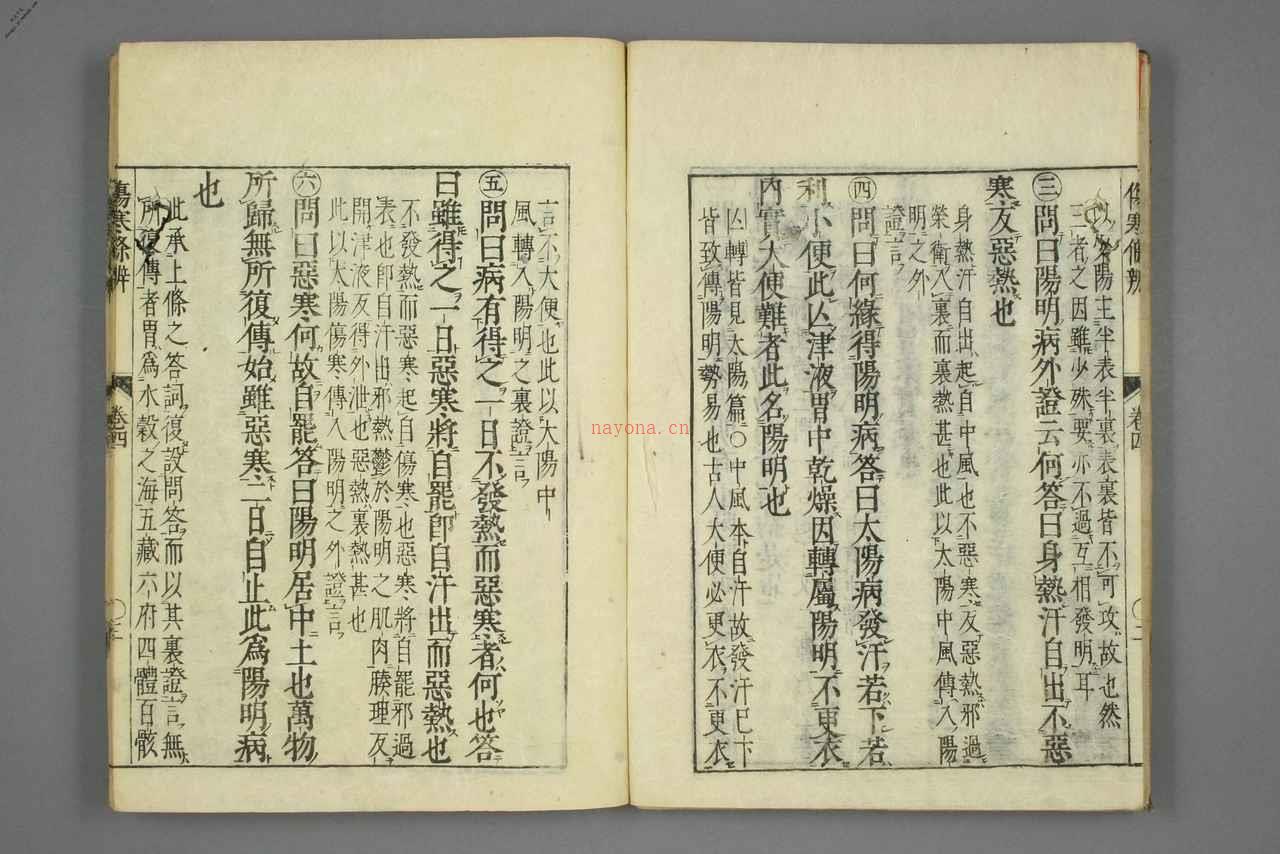 傷寒條辨 卷四 〇二
以少陽主半表半裏表裏皆不可攻故也然
三者之因雖少殊要亦不過互相發明耳
㊂問曰陽明病外證云何答曰身熱汗自出不惡
寒反惡熱也
身熱汗自出起自中風也不惡寒反惡熱邪過
榮衛入裏而裏熱甚也此以太陽中風傳入陽
明之外
證言
㊃問曰何緣得陽明病答曰太陽病發汗若下若
利小便此亾津液胃中乾燥因轉屬陽明不更衣
內實大便難者此名陽明也
亾轉皆見太陽篇〇中風本自汗故發汗巳下
皆致傳陽明勢易也古人大便必更衣不更衣
言不大便也此以太陽中
風轉入陽明之裏證言
㊄問曰病有得之一日不發熱而惡寒者何也答
曰雖得之一日惡寒將自罷卽自汗出而惡熱也
不發熱而惡寒起自傷寒也惡寒將自罷邪過
表也卽自汗出邪熱鬱於陽明之肌肉腠理反
開津液反得外泄也惡熱裏熱甚也
此以太陽傷寒傳入陽明之外證言
㊅問曰惡寒何故自罷答曰陽明居中土也萬物
所歸無所復傳始雖惡寒二日自止此爲陽明病
也
此承上條之答詞復設問答而以其裏證言無
所復傳者胃爲水穀之海五藏六府四體百骸
傷寒條辨 卷四 〇三
nayona.cn